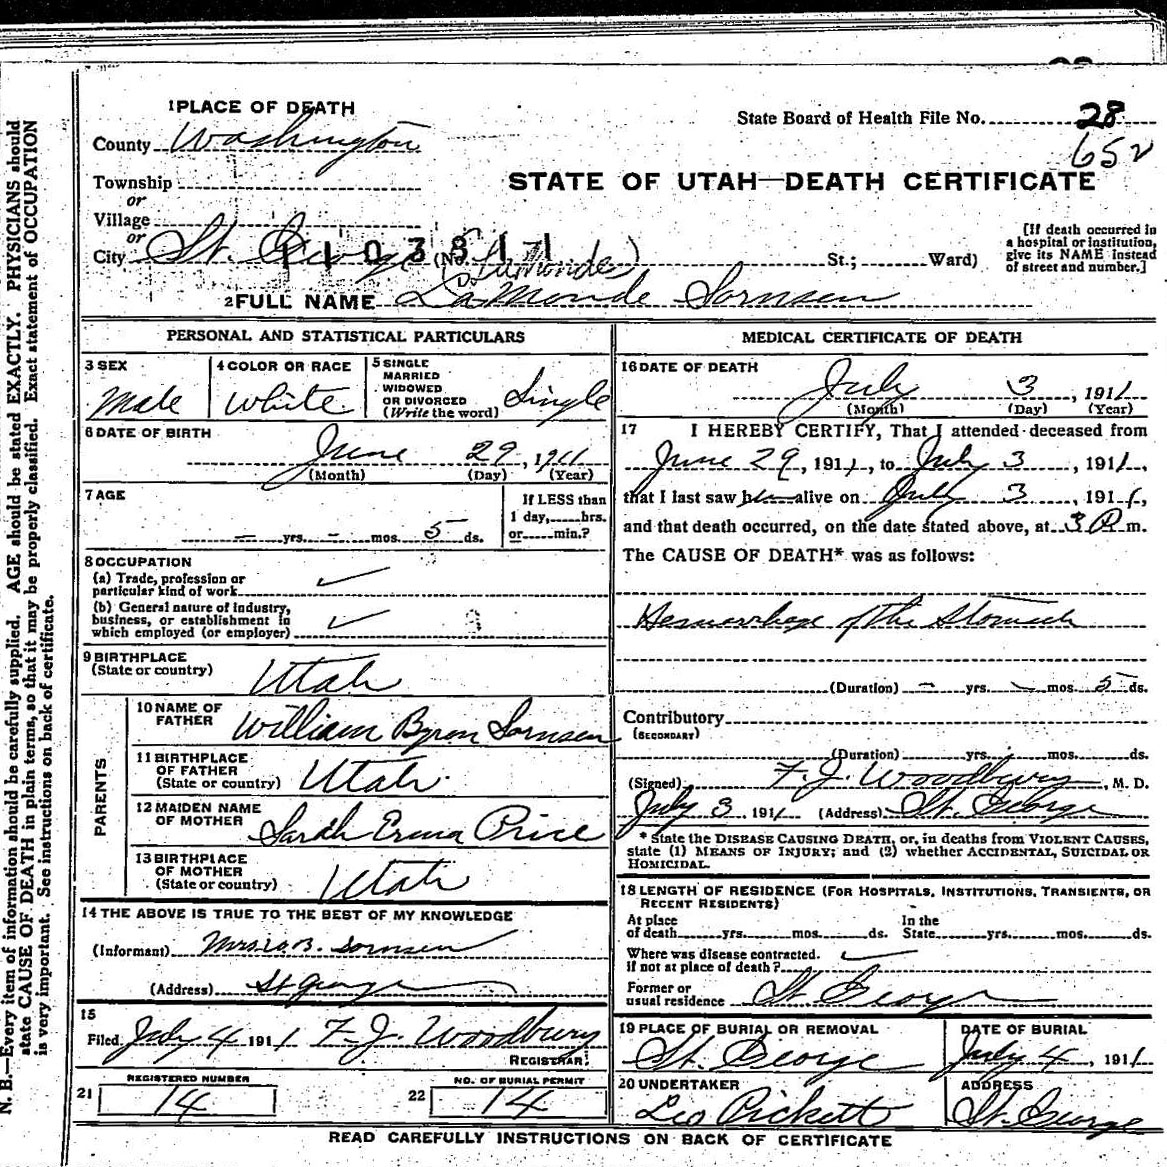 1 PLACE OF DEATH
County Washington
State Board of Health File No. 28
652
Township
or
Village
or
City St. George
1103811
STATE OF UTAH—DEATH CERTIFICATE
(No. St.; Ward)
(LaMonde)
[If death occurred in a hospital or institution, give its NAME instead of street and number.]
2 FULL NAME LaMonde Sornsen
PERSONAL AND STATISTICAL PARTICULARS
3 SEX
Male
4 COLOR OR RACE
White
5 SINGLE
MARRIED
WIDOWED
OR DIVORCED
(Write the word)
Single
6 DATE OF BIRTH
June 29, 1911
(Month) (Day) (Year)
7 AGE
— yrs. - mos. 5 ds.
If LESS than
1 day, hrs.
or min.?
8 OCCUPATION
(a) Trade, profession or
particular kind of work ✓
(b) General nature of industry,
business, or establishment in
which employed (or employer) ✓
9 BIRTHPLACE
(State or country)
Utah
PARENTS
10 NAME OF
FATHER
William Byron Sornsen
11 BIRTHPLACE
OF FATHER
(State or country)
Utah
12 MAIDEN NAME
OF MOTHER
Sarah Erma Price
13 BIRTHPLACE
OF MOTHER
(State or country)
Utah
14 THE ABOVE IS TRUE TO THE BEST OF MY KNOWLEDGE
(Informant) Mrs. W. B. Sornsen
(Address) St George
15
Filed July 4 1911 F. J. Woodbury
REGISTRAR.
21
REGISTERED NUMBER
14
22
NO. OF BURIAL PERMIT
14
MEDICAL CERTIFICATE OF DEATH
16 DATE OF DEATH
July 3, 1911
(Month) (Day) (Year)
17 I HEREBY CERTIFY, That I attended deceased from
June 29, 1911, to July 3, 1911,
that I last saw him alive on July 3, 1911,
and that death occurred, on the date stated above, at 3 P m.
The CAUSE OF DEATH* was as follows:
Hemorrhage of the Stomach
(Duration) – yrs. – mos. 5 ds.
Contributory
(SECONDARY)
(Duration) yrs. mos. ds.
(Signed) F. J. Woodbury, M. D.
July 3 1911 (Address) St. George
* State the DISEASE CAUSING DEATH, or, in deaths from VIOLENT CAUSES,
state (1) MEANS OF INJURY; and (2) whether ACCIDENTAL, SUICIDAL OR
HOMICIDAL.
18 LENGTH OF RESIDENCE (FOR HOSPITALS, INSTITUTIONS, TRANSIENTS, OR
RECENT RESIDENTS)
At place
of death yrs. mos. ds.
In the
State yrs. mos. ds.
Where was disease contracted.
if not at place of death? ✓
Former or
usual residence St. George
19 PLACE OF BURIAL OR REMOVAL
St. George
DATE OF BURIAL
July 4, 1911
20 UNDERTAKER
Leo Pickett
ADDRESS
St. George
READ CAREFULLY INSTRUCTIONS ON BACK OF CERTIFICATE
N. B.—Every item of information should be carefully supplied. AGE should be stated EXACTLY. PHYSICIANS should
state CAUSE OF DEATH in plain terms, so that it may be properly classified. Exact statement of OCCUPATION
is very important. See instructions on back of certificate.